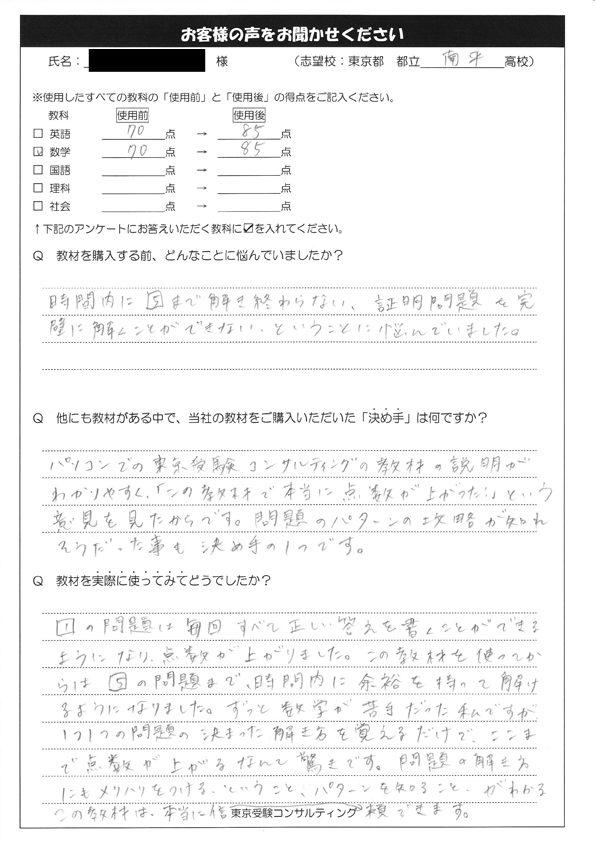 お客様の声をお聞かせください
氏名： 様 （志望校：東京都 都立 南平 高校）
※使用したすべての教科の「使用前」と「使用後」の得点をご記入ください。
教科 使用前 使用後
□ 英語 70 点 → 85 点
☑ 数学 70 点 → 85 点
□ 国語 点 → 点
□ 理科 点 → 点
□ 社会 点 → 点
↑下記のアンケートにお答えいただく教科に☑を入れてください。
Q 教材を購入する前、どんなことに悩んでいましたか？
時間内に 5 まで解き終わらない、証明問題を完
璧に解くことができない、ということに悩んでいました。
Q 他にも教材がある中で、当社の教材をご購入いただいた「決め手」は何ですか？
パソコンでの東京受験コンサルティングの教材の説明が
わかりやすく、「この教材で本当に点数が上がった！」という
意見を見たからです。問題のパターンの攻略が知れ
そうだった事も決め手の1つです。
Q 教材を実際に使ってみてどうでしたか？
1 の問題は毎回すべて正しい答えを書くことができる
ようになり、点数が上がりました。この教材を使ってか
らは 5 の問題まで、時間内に余裕を持って解け
るようになりました。ずっと数学が苦手だった私ですが
1つ1つの問題の決まった解き方を覚えるだけで、ここま
で点数が上がるなんて驚きです。問題の解き方
にもメリハリをつける、ということ、パターンを知ること、がわかる
この教材は、本当に信頼できます。
東京受験コンサルティング